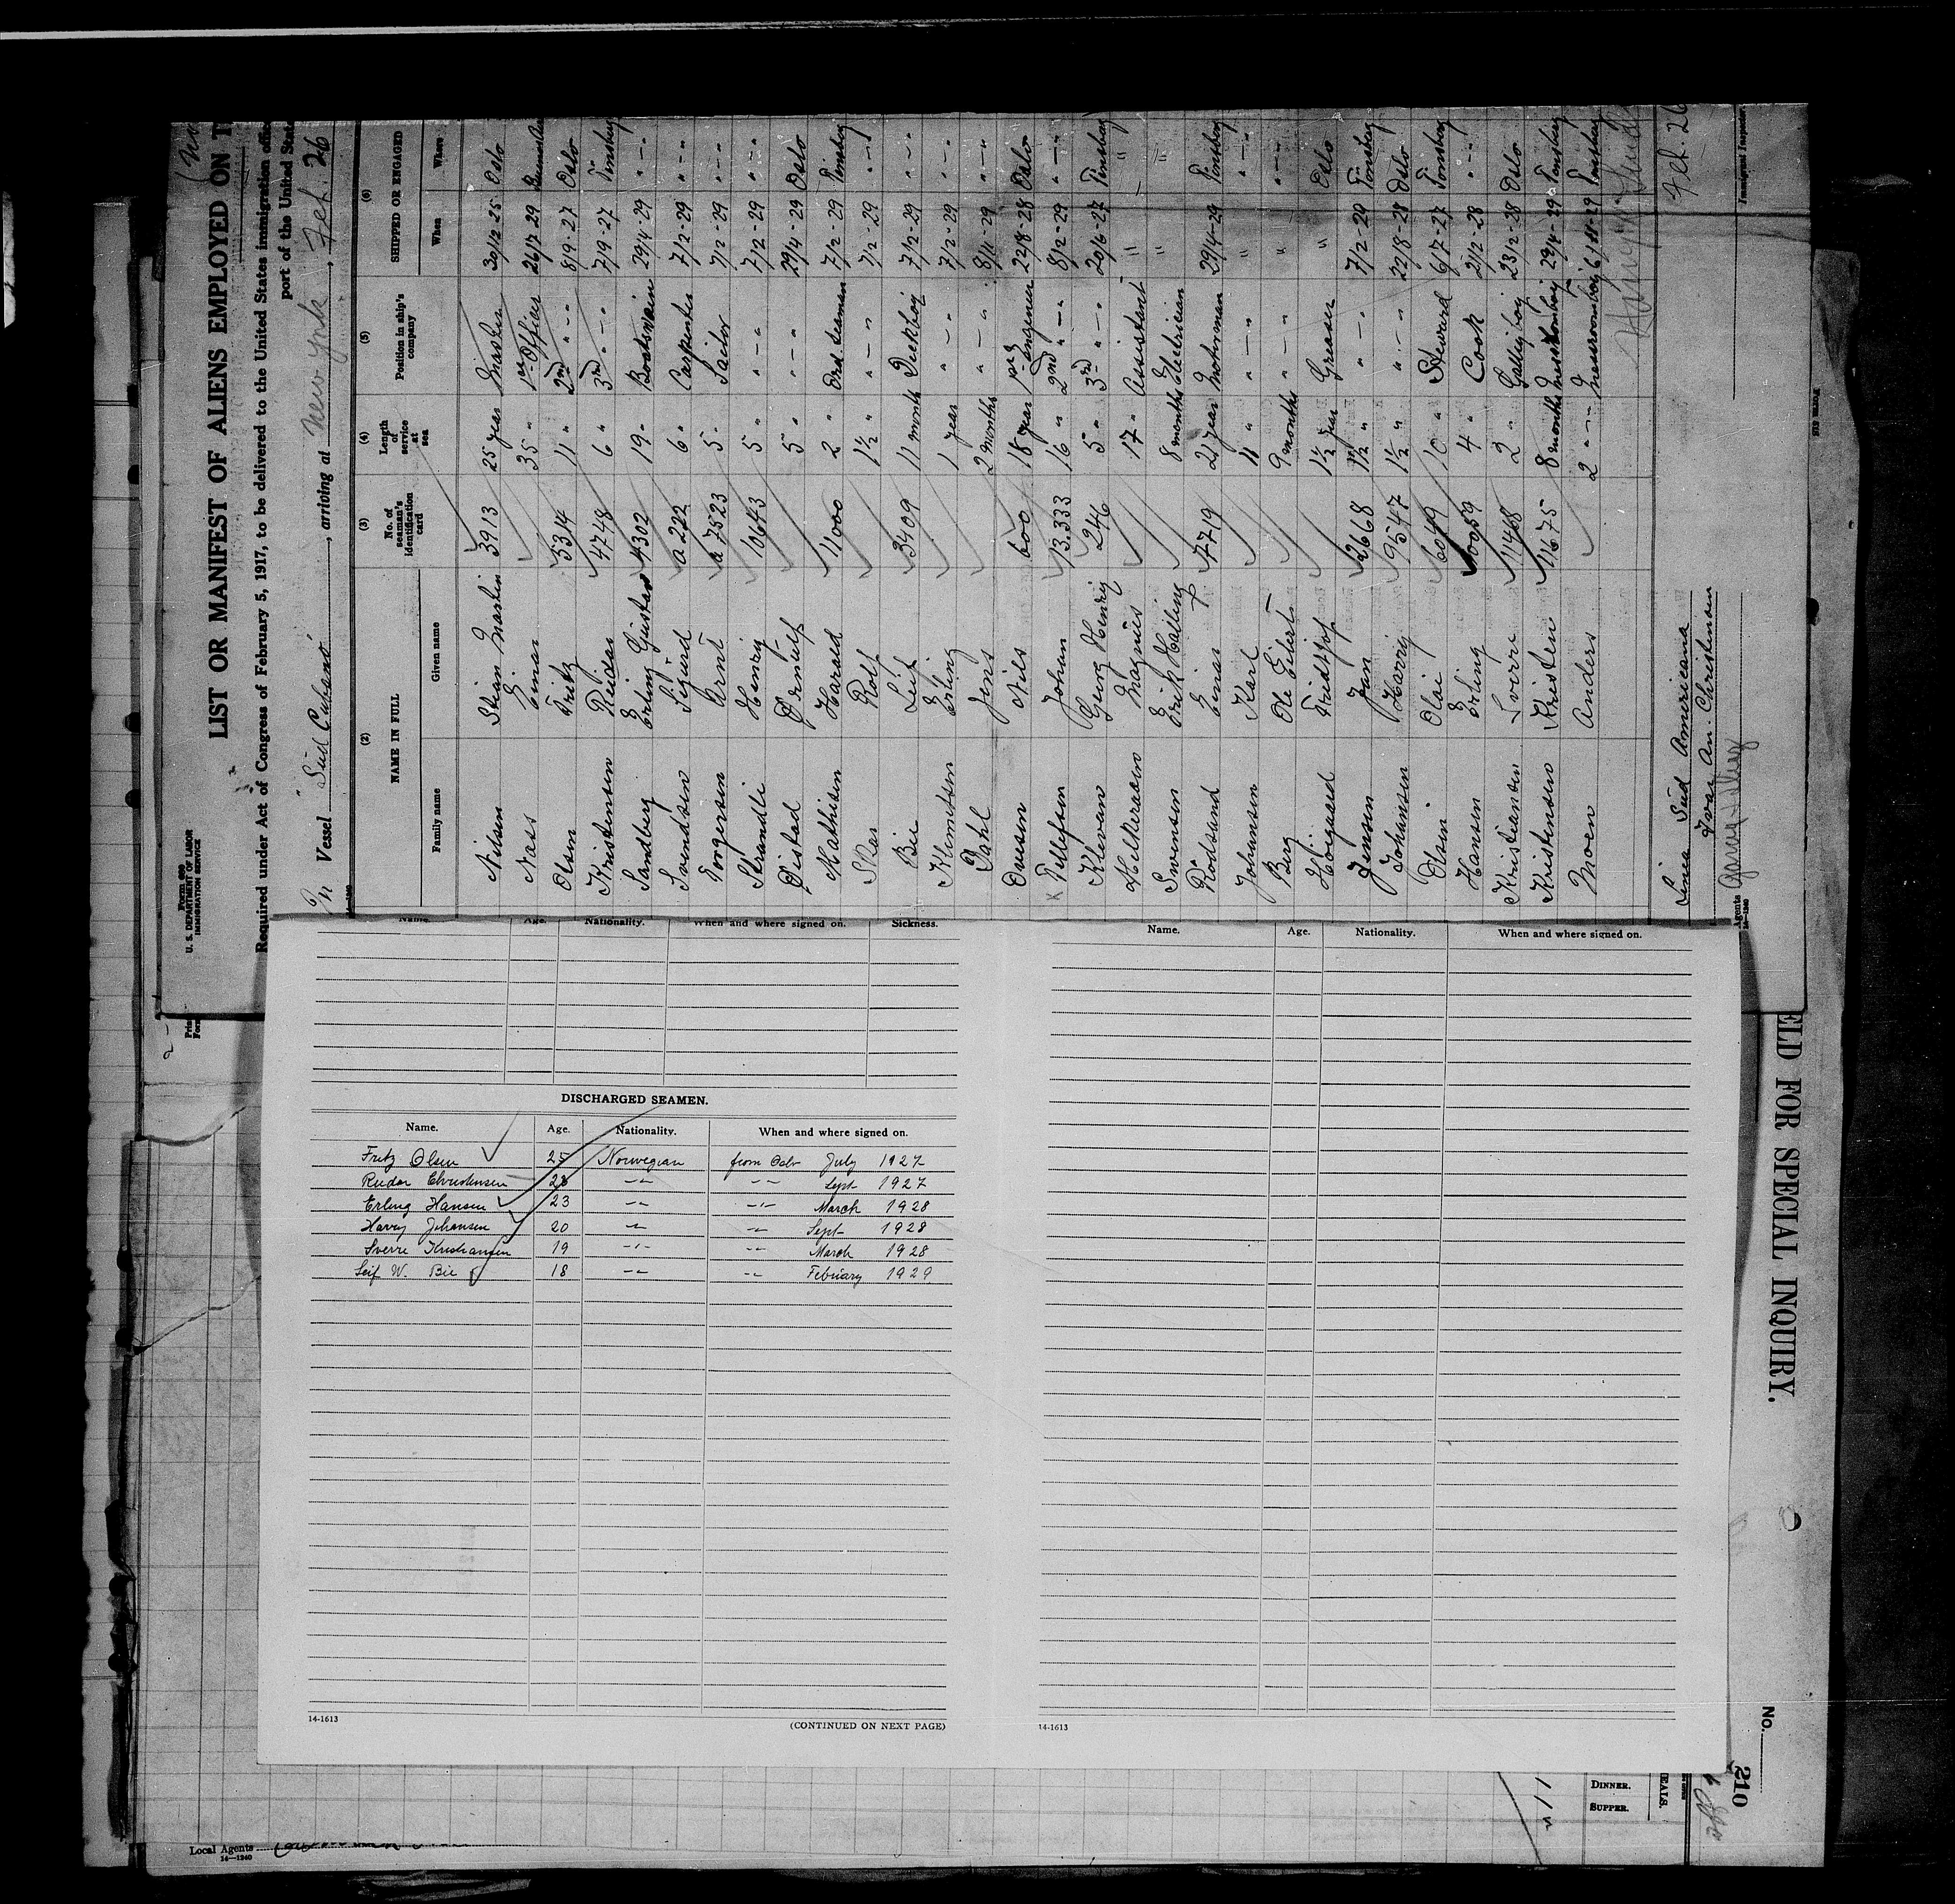 Form 689
U. S. DEPARTMENT OF LABOR
IMMIGRATION SERVICE
LIST OR MANIFEST OF ALIENS EMPLOYED ON T
Required under Act of Congress of February 5, 1917, to be delivered to the United States immigration offic
port of the United Stat
Vessel Sud Cubano, arriving at New York, Feb. 26
(2) (3) (4) (5) (6)
NAME IN FULL No. of seaman's identification card Length of service at sea Position in ship's company SHIPPED OR ENGAGED
Family name Given name When Where
Nilsen Stian Martin 3913 25 year Master 30/12-25 Oslo
Nass Einar 35 " 1st Officer 26/7-29
Olsen Fritz 5314 11 " 2nd " 8/9-27 Oslo
Kristensen Reidar 4748 6 " 3rd " 7/9-27 Tönsberg
Sandberg Erling Gustav 4302 19 " Boatswain 29/4-29 "
Svendsen Sigurd a 222 6 " Carpenter 7/2-29 "
Torgersen Arnt a 7523 5 " Sailor 7/2-29 "
Strandli Henry 10643 5 " " 7/2-29 "
Qvistad Ørnulf 5 " " 29/4-29 Oslo
Mathisen Harald 11000 2 " Ord. Seaman 7/2-29 Tönsberg
Skar Rolf 1½ " " 7/2-29 "
Bie Leif 3409 11 month Deckboy 7/2-29 "
Knutsen Erling 1 year " 7/2-29 "
Dahl Jens 2 months " 8/11-29 "
Nils 600 18 year 1st Engineer 22/8-28 Oslo
x Tellefsen Johan 13.333 16 " 2nd " 8/2-29 "
Klevan Georg Henry 246 5 " 3rd " 20/6-27 Tönsberg
Magnus 17 " Assistant " "
Svensen Erik Halling 8 months Electrician " "
Rodsand Enar 7719 2 year Motorman 29/4-29 Tönsberg
Johansen Karl 11 " " " "
Berg Ole Eilert 9 months " " "
Hoigaard Fridtjof 1½ year Greaser " Oslo
Jensen Jan 2668 1½ " " 7/2-29 Tönsberg
Johansen Harry 9547 1½ " " 22/8-28 Oslo
Olsen Olai 6049 10 " Steward 6/7-27 Tönsberg
Hansen Erling 10059 4 " Cook 21/2-28 "
Kristiansen Sverre 11468 2 " Galleyboy 23/2-28 Oslo
Kristensen Kristen 11675 8 months Messroomboy 29/4-29 Tönsberg
Moen Anders 2 " Messroomboy 6/11-29 Tönsberg
Linea Sud Americana
Ivar An. Christensen
Agents
14-1240
Feb. 26
Immigrant Inspector.
Name. Age. Nationality. When and where signed on. Sickness.
DISCHARGED SEAMEN.
Name. Age. Nationality. When and where signed on.
Fritz Olsen 25 Norwegian from Oslo July 1927
Reidar Christensen 28 -"- -"- Sept 1927
Erling Hansen 23 -"- -"- March 1928
Harry Johansen 20 -"- -"- Sept 1928
Sverre Kristiansen 19 -"- -"- March 1928
Leif W. Bie 18 -"- -"- February 1929
14-1613
(CONTINUED ON NEXT PAGE)
Name. Age. Nationality. When and where signed on.
14-1613
ELD FOR SPECIAL INQUIRY.
No.
210
DINNER.
SUPPER.
EALS.
Local Agents
14-1240